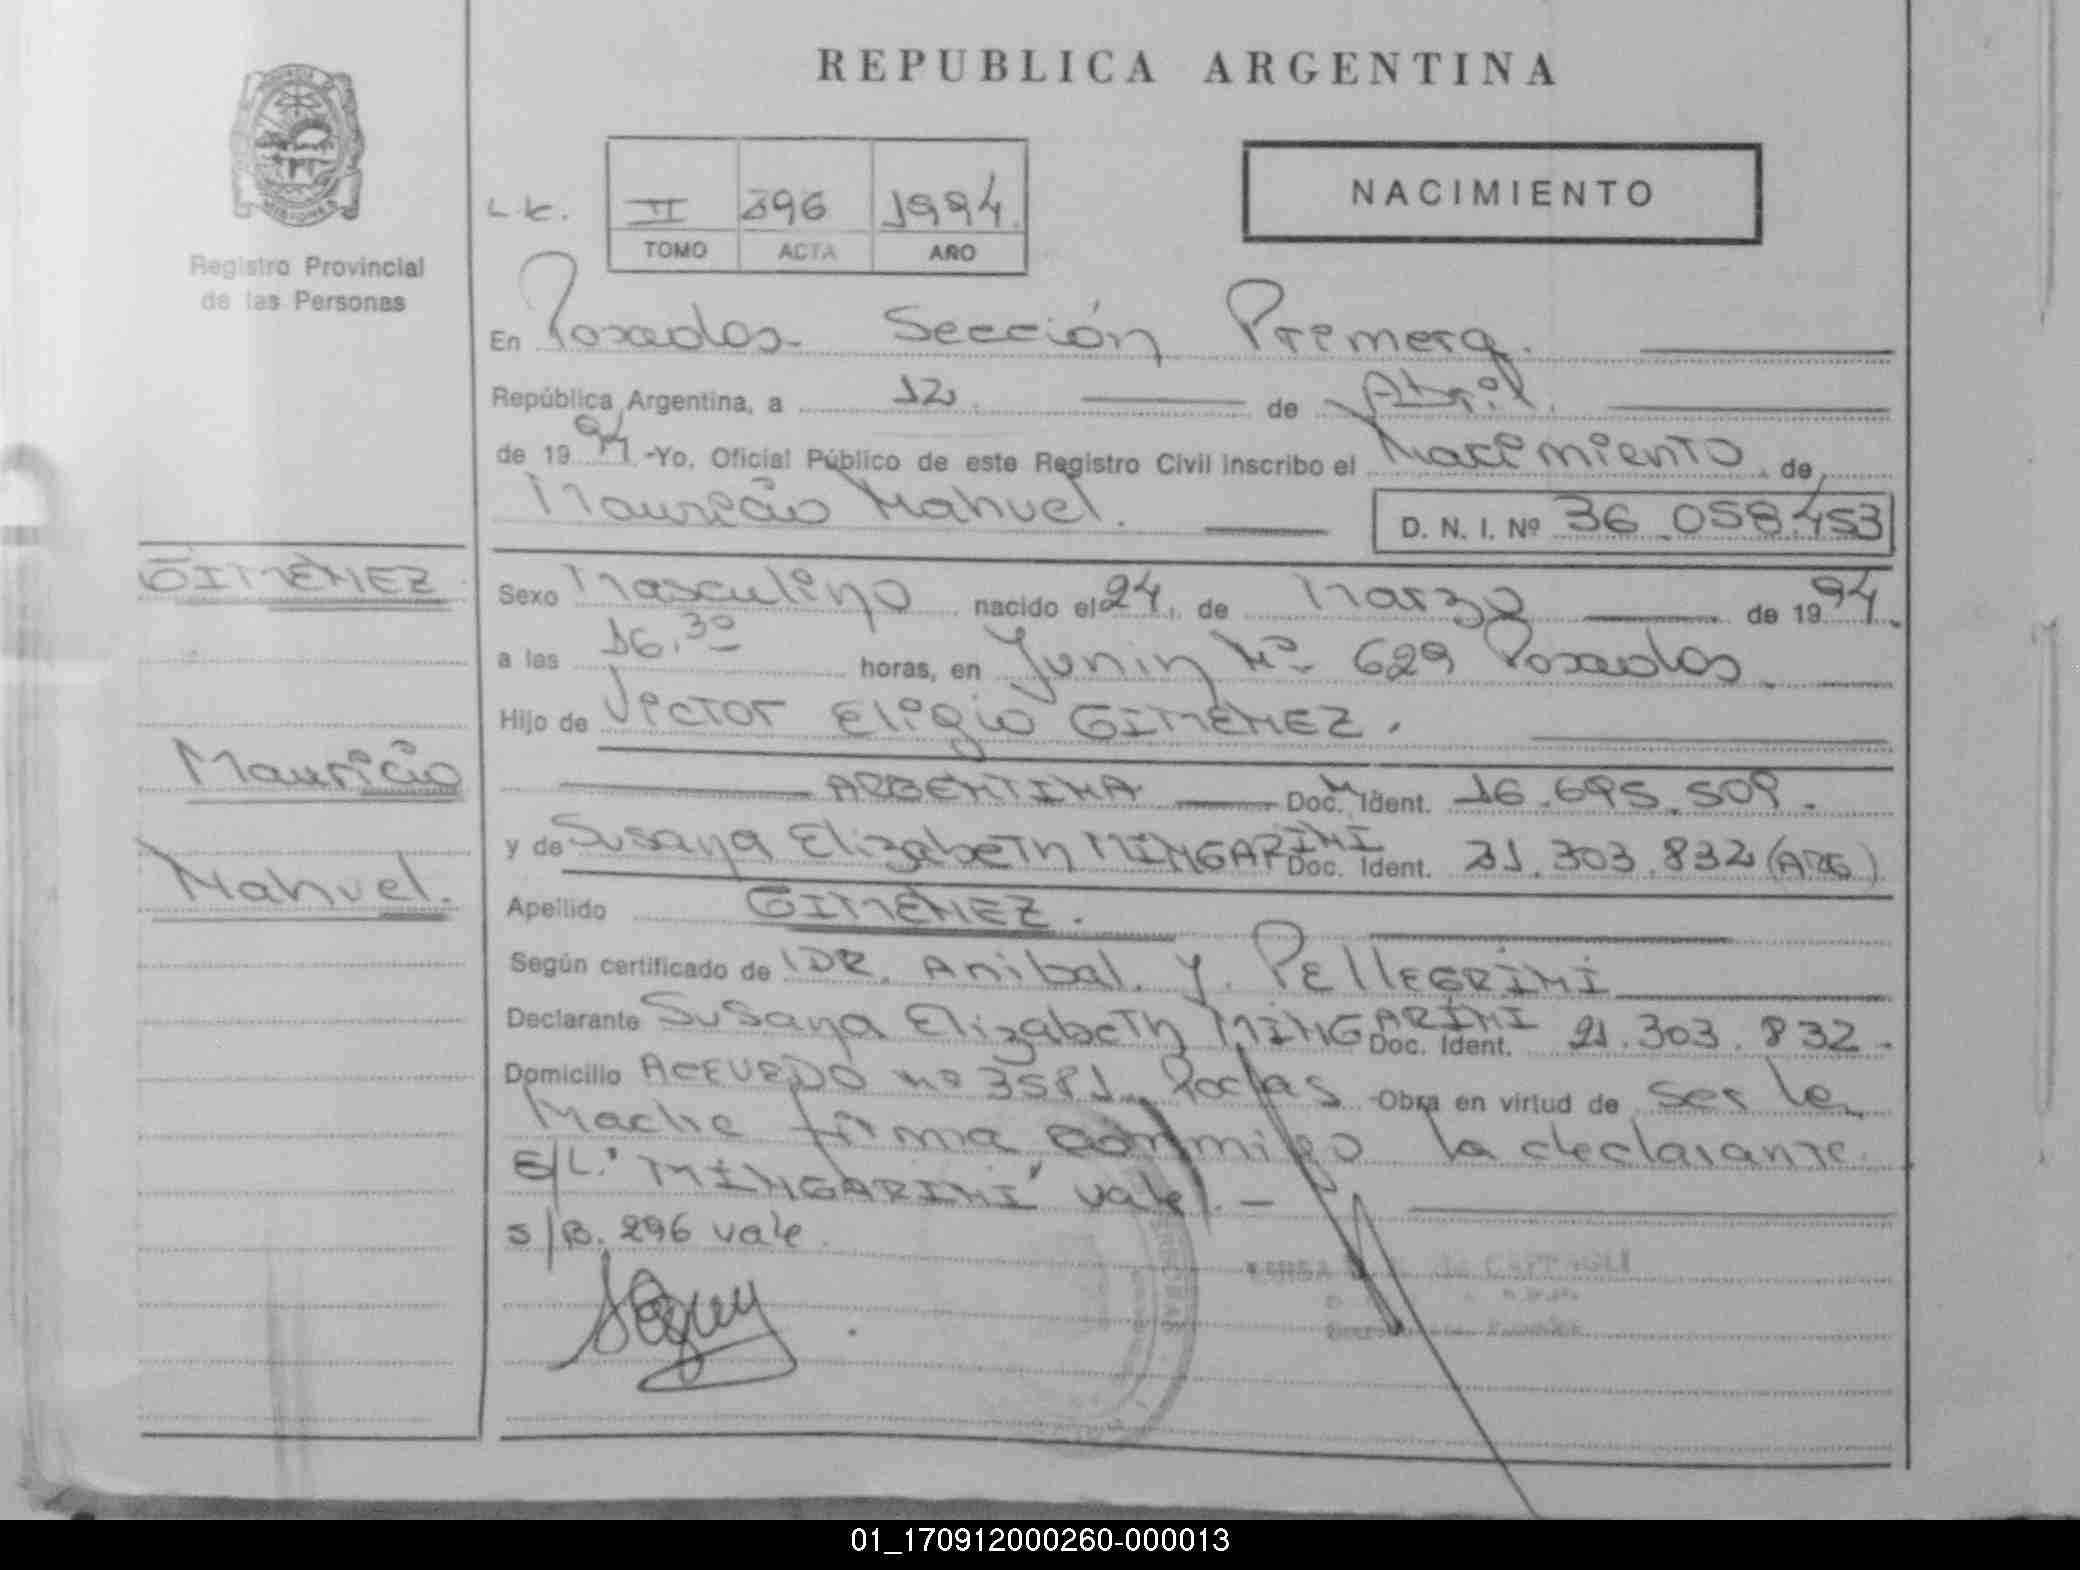 REPUBLICA ARGENTINA
NACIMIENTO
L.E. II 396 1994.
TOMO ACTA AÑO
Registro Provincial
de las Personas
En Posadas Sección Primera.
República Argentina, a 12. de Abril.
de 1994 -Yo, Oficial Público de este Registro Civil inscribo el Nacimiento de
Mauricio Manuel. D. N. I. Nº 36.058.453
GIMENEZ
Mauricio
Manuel.
Sexo Masculino nacido el 24, de Marzo de 1994.
a las 16.30 horas, en Junin Nº 629 Posadas
Hijo de Victor Eligio GIMENEZ.
ARGENTINA Doc. M Ident. 16.695.509.
y de Susana Elizabeth MINGARINI Doc. Ident. 21.303.832 (ARG)
Apellido GIMENEZ.
Según certificado de DR. Anibal. Y. PELLEGRINI
Declarante Susana Elizabeth MINGARINI Doc. Ident. 21.303.832.
Domicilio ACEVEDO nº 3581 Pocfas -Obra en virtud de ser la
Madre firma conmigo la declarante.
E/L." MINGARINI" vale.-
S/B. 296 vale
01_170912000260-000013